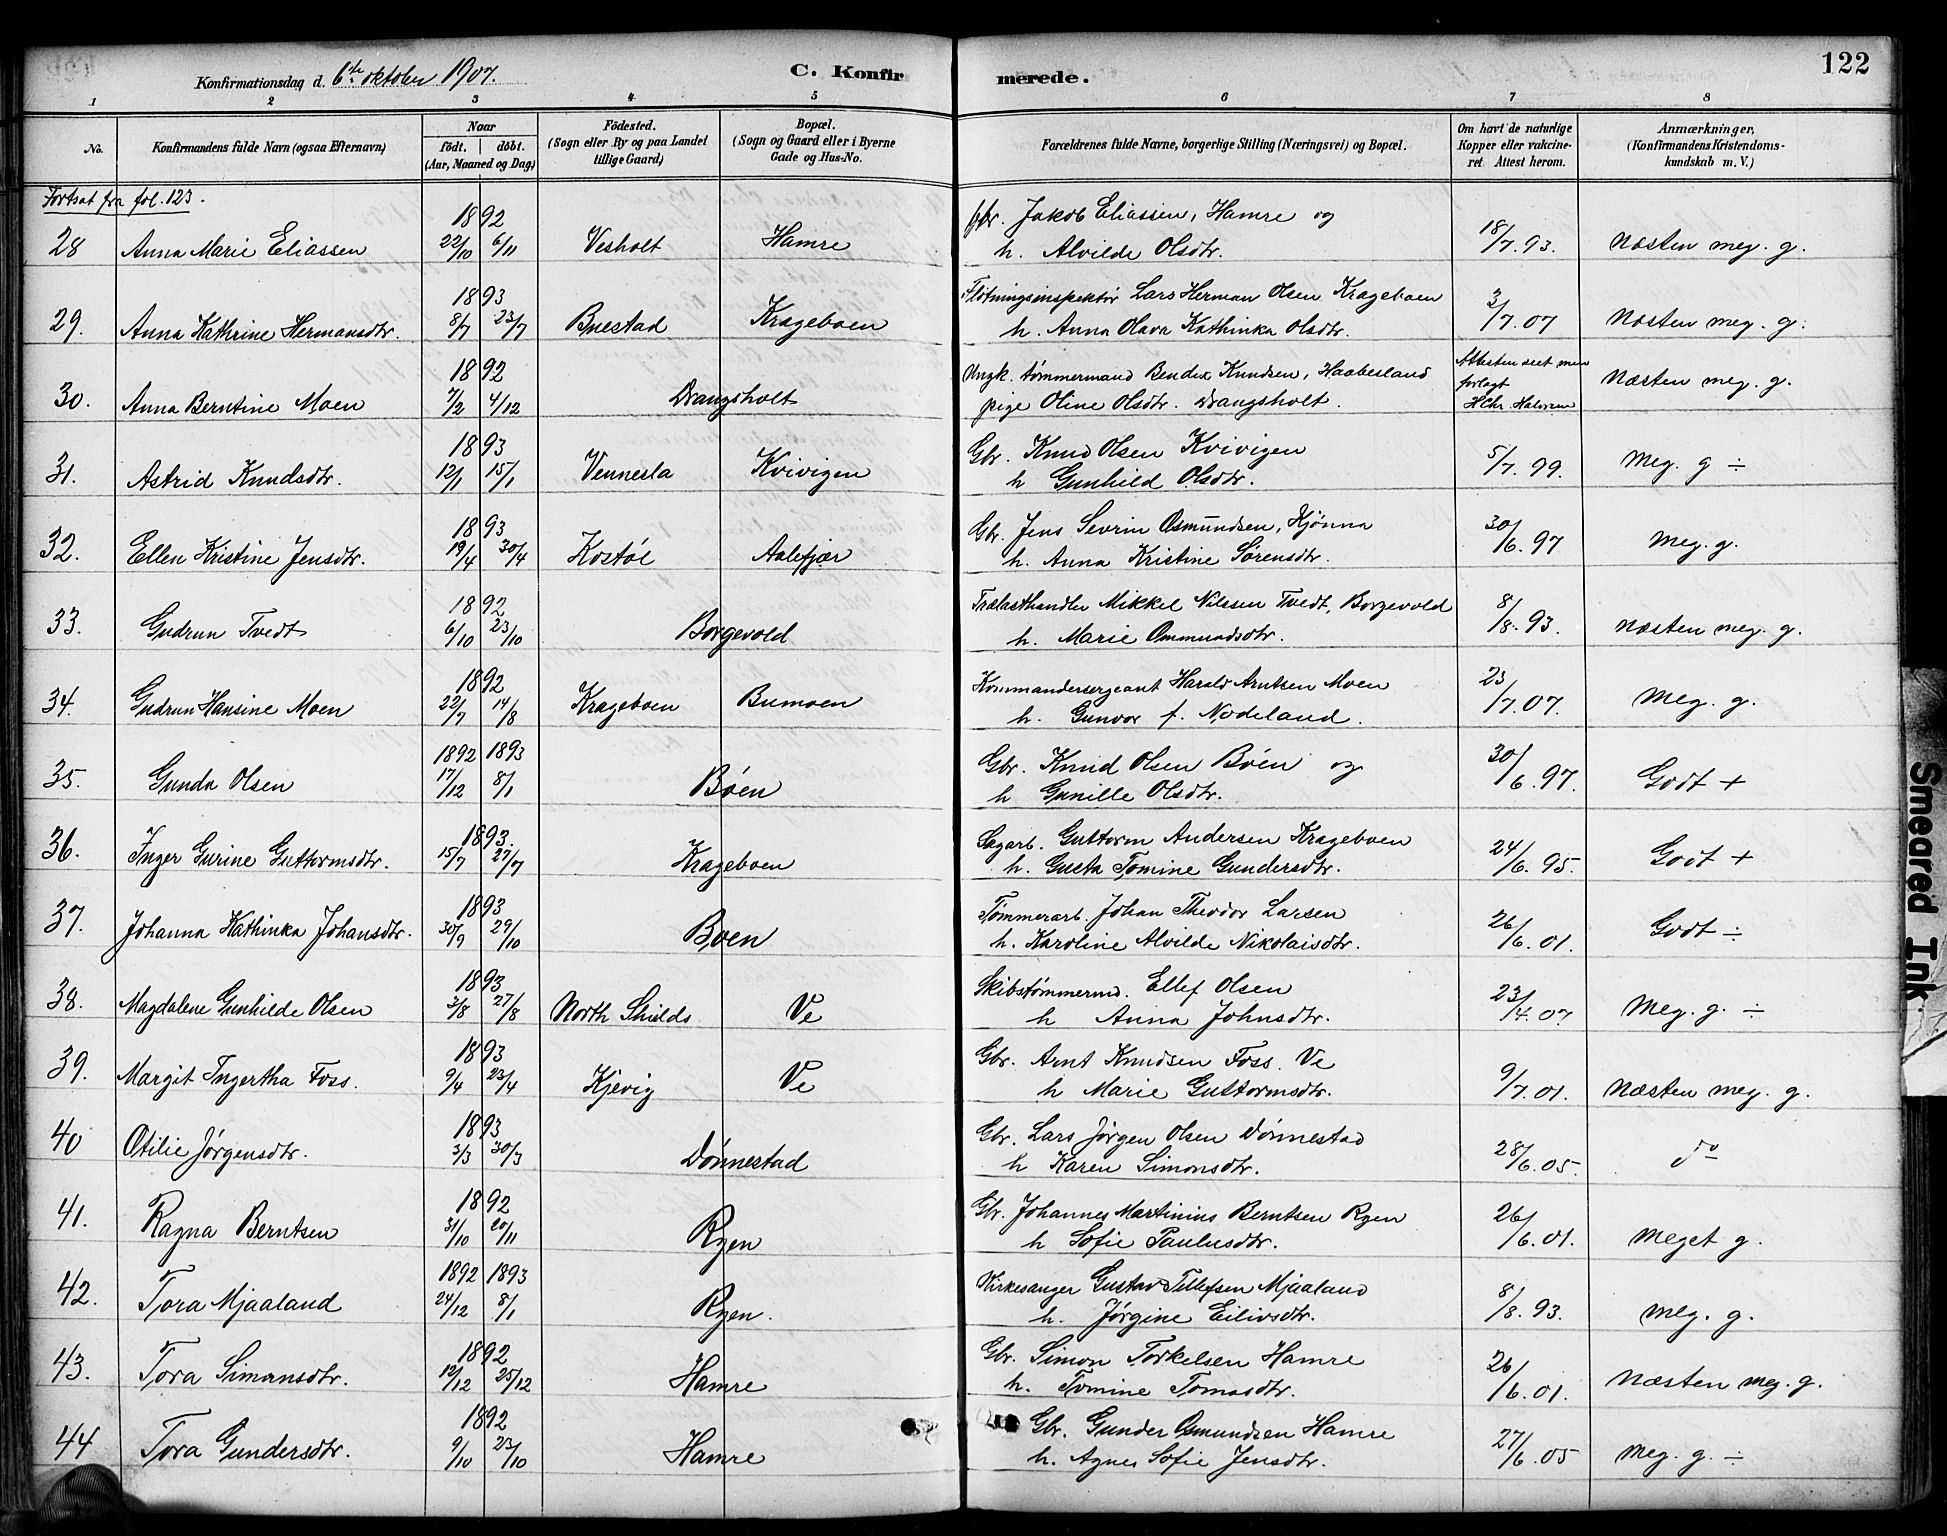 Konfirmationsdag d. 6te oktober 1907.
C. Konfirmerede.
122
1 2 3 4 5 6 7 8
No.
Konfirmandens fulde Navn (ogsaa Efternavn)
Naar
födt. döbt.
(Aar, Maaned og Dag)
Födested.
(Sogn eller By og paa Landet tillige Gaard)
Bopæl.
(Sogn og Gaard eller i Byerne Gade og Hus-No.
Forældrenes fulde Navne, borgerlige Stilling (Næringsvei) og Bopæl.
Om havt de naturlige Kopper eller vakcineret. Attest herom.
Anmærkninger.
(Konfirmandens Kristendomskundskab m. V.)
Fortsat fra fol. 123.
1892 Jakob Eliassen, Hamre og
28 Anna Marie Eliassen 22/10 6/11 Vesholt Hamre h. Alvilde Olsdtr. 18/7. 93. Næsten meg. g.
1893 Fløtningsinspektør Lars Herman Olsen Krageboen
29. Anna Kathrine Hermansdtr. 8/7 23/7 Bnestad Krageboen h. Anna Olava Kathinka Olsdtr. 3/7. 07 Næsten meg. g.
1892 Ungk. tømmermand Bendix Knudsen, Haabesland Attesten seet men
30. Anna Berntine Moen 7/2 4/12 Drangsholt pige Oline Olsdtr. Drangsholt. forlagt HChr. Halvorsen Næsten meg. g.
1893 Gbr. Knud Olsen Kvivigen
31. Astrid Knudsdtr. 12/1 15/1 Vennesla Kvivigen h Gunhild Olsdtr. 5/7. 99. Meg. g ÷
1893 Gbr. Jens Sevrin Osmundsen, Kjønna
32. Ellen Kristine Jensdtr. 19/4 30/4 Kostøl Aalefjær h. Anna Kristine Sørensdtr. 30/6. 97 Meg. g.
1892 Trælasthandler Mikkel Nilssen Tvedt, Borgevold
33. Gudrun Tvedt 6/10 23/10 Borgevold h. Marie Ommundsdtr. 8/8. 93. Næsten meg. g.
1892 Kommandersergeant Harald Arntsen Moen
34. Gudrun Hansine Moen 22/7 14/8 Krageboen Bumoen h. Gunvor f. Nodeland. 23/7. 07. Meg. g.
1892 1893 Gbr. Knud Olsen Bøen og
35. Gunda Olsen 17/12 8/1 Bøen h Gunille Olsdtr. 30/6. 97. Godt +
1893. Sagarb. Guttorm Andersen Krageboen
36. Inger Gurine Guttormsdtr. 15/7 27/7 Krageboen h. Gusta Tomine Gundersdtr. 24/6. 95. Godt +
1893 Tømmerarb. Johan Theodor Larsen
37. Johanna Kathinka Johansdtr. 30/9 29/10 Boen h. Karoline Alvilde Nikolaisdtr. 26/6. 01. Godt ÷
1893 Skibstømmermd. Ellef Olsen
38. Magdalene Gunhilde Olsen 3/8 27/8 North Shields Ve h Anna Johnsdtr. 23/4. 07 Meg. g. ÷
1893 Gbr. Arnt Knudsen Foss. Ve
39. Margit Ingertha Foss. 9/4 23/4 Kjevig Ve h Marie Guttormsdtr. 9/7. 01. Næsten meg. g.
1893 Gbr. Lars Jørgen Olsen Dønnestad
40 Otilie Jørgensdtr. 3/3 30/3 Dønnestad h Karen Simonsdtr. 28/6. 05. do
1892 Gbr. Johannes Martinius Berntsen Ryen
41. Ragna Berntsen 31/10 20/11 Ryen h Sofie Paulusdtr. 26/6. 01. Meget g.
1892 1893 Kirkesanger Gustav Tellefsen Mjaaland
42. Tora Mjaaland 24/12 8/1 Ryen. h. Jørgine Eilivsdtr. 8/8. 93. Meg. g.
1892 Gbr. Simon Torkelsen Hamre
43. Tora Simonsdtr. 12/12 25/12 Hamre h. Tomine Tomasdtr. 26/6. 01. Næsten meg. g.
1892 Gbr. Gunder Osmundsen Hamre
44 Tora Gundersdtr. 9/10 23/10 Hamre h. Agnes Sofie Jensdtr. 27/6. 05 Meg. g. ÷
Smeared Ink.